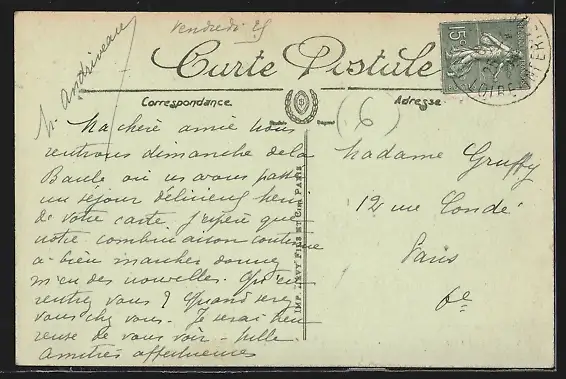 Vendredi 25
Andriveau
Carte Postale
Correspondance
Adresse
15c
LOIRE-INFERI
6
Ma chère amie Nous
rentrons dimanche de la
Baule où ns avons passé
un séjour délicieux heu
de votre carte. J'espère que
votre combinaison continue
à bien marcher donnez
m'en des nouvelles. Qd
rentrez vous ? Quand serez
vous chez vous. Je serai heu
reuse de vous voir - mille
amitiés affectueuses
IMP. LÉVY FILS ET CIE PARIS
Madame Gruffy
12 rue Condé
Paris
6e